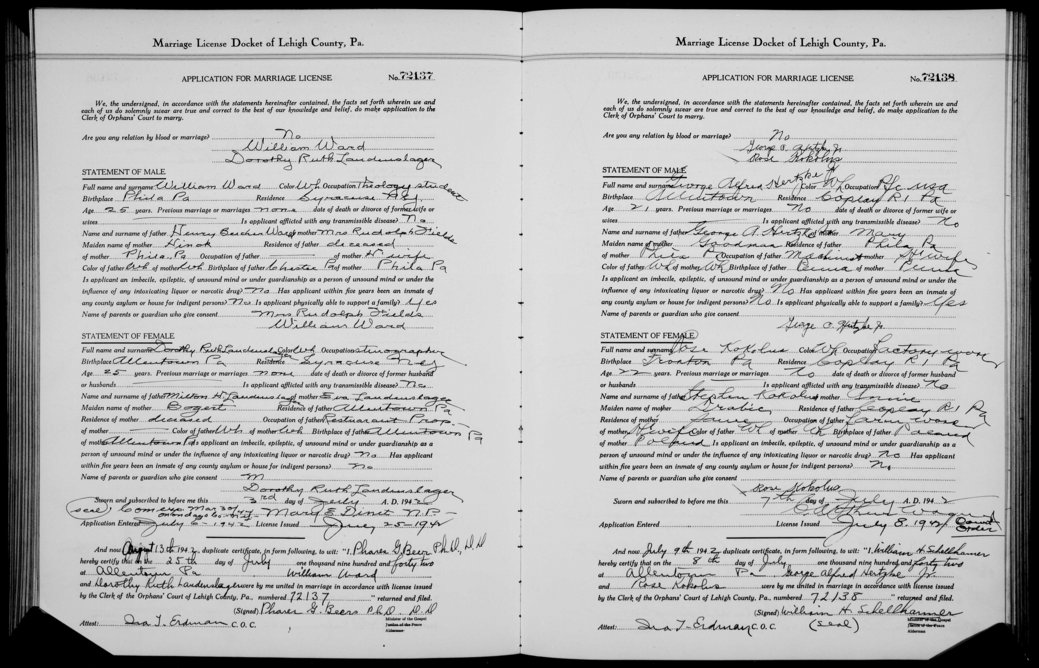 Marriage License Docket of Lehigh County, Pa.
APPLICATION FOR MARRIAGE LICENSE No. 72137
We, the undersigned, in accordance with the statements hereinafter contained, the facts set forth wherein we and
each of us do solemnly swear are true and correct to the best of our knowledge and belief, do make application to the
Clerk of Orphans' Court to marry.
Are you any relation by blood or marriage? No
William Ward
Dorothy Ruth Laudenslager
STATEMENT OF MALE
Full name and surname William Ward Color Wh Occupation Theology student
Birthplace Phila Pa Residence Syracuse N.Y.
Age 25 years. Previous marriage or marriages none date of death or divorce of former wife or
wives Is applicant afflicted with any transmissible disease? No
Name and surname of father Henry Ward mother Mrs Rudolph Fields
Maiden name of mother Residence of father deceased
of mother Phila. Pa Occupation of father of mother H. wife
Color of father Wh of mother Wh Birthplace of father Chester Pa of mother Phila Pa
Is applicant an imbecile, epileptic, of unsound mind or under guardianship as a person of unsound mind or under the
influence of any intoxicating liquor or narcotic drug? No Has applicant within five years been an inmate of
any county asylum or house for indigent persons? No Is applicant physically able to support a family? Yes
Name of parents or guardian who give consent Mrs Rudolph Fields
William Ward
STATEMENT OF FEMALE
Full name and surname Dorothy Ruth Laudenslager Color Wh Occupation stenographer
Birthplace Allentown Pa Residence Syracuse N.Y.
Age 25 years. Previous marriage or marriages none date of death or divorce of former husband
or husbands Is applicant afflicted with any transmissible disease? No
Name and surname of father Milton H. Laudenslager mother Eva Laudenslager
Maiden name of mother Bogert Residence of father Allentown Pa
Residence of mother deceased Occupation of father Restaurant Prop.
of mother Color of father Wh of mother Wh Birthplace of father Allentown Pa
of mother Allentown Pa Is applicant an imbecile, epileptic, of unsound mind or under guardianship as a
person of unsound mind or under the influence of any intoxicating liquor or narcotic drug? No Has applicant
within five years been an inmate of any county asylum or house for indigent persons? No
Name of parents or guardian who give consent
Dorothy Ruth Laudenslager
Sworn and subscribed to before me this 3rd day of July A. D. 1942
(seal) Com exp Mar Mary E N.P.
Application Entered July 6 - 1942 License Issued 25 - 1942
And now August 13th 1942, duplicate certificate, in form following, to wit: "I, Phares G. Beer Ph.D., D.D
hereby certify that on the 25th day of July one thousand nine hundred and forty two
at Allentown Pa William Ward
and Dorothy Ruth Laudenslager were by me united in marriage in accordance with license issued
by the Clerk of the Orphans' Court of Lehigh County, Pa., numbered 72137 " returned and filed.
(Signed) Phares G. Beers Ph.D. D.D
Minister of the Gospel
Justice of the Peace
Alderman
Attest: Ira T. Erdman C.O.C.
Marriage License Docket of Lehigh County, Pa.
APPLICATION FOR MARRIAGE LICENSE No. 72138
We, the undersigned, in accordance with the statements hereinafter contained, the facts set forth wherein we and
each of us do solemnly swear are true and correct to the best of our knowledge and belief, do make application to the
Clerk of Orphans' Court to marry.
Are you any relation by blood or marriage? No
George A. Hertzke Jr.
Rose Kokolus
STATEMENT OF MALE
Full name and surname George Alfred Hertzke Jr Color Wh Occupation Pfc USA
Birthplace Allentown Residence Coplay R 1 Pa
Age 21 years. Previous marriage or marriages No date of death or divorce of former wife or
wives Is applicant afflicted with any transmissible disease? No
Name and surname of father George A. Hertzke mother Mary
Maiden name of mother Goodman Residence of father Phila Pa
of mother Phila Pa Occupation of father Machinist of mother H wife
Color of father Wh of mother Wh Birthplace of father Penna of mother Penna
Is applicant an imbecile, epileptic, of unsound mind or under guardianship as a person of unsound mind or under the
influence of any intoxicating liquor or narcotic drug? No Has applicant within five years been an inmate of
any county asylum or house for indigent persons? No Is applicant physically able to support a family? Yes
Name of parents or guardian who give consent
George A. Hertzke Jr.
STATEMENT OF FEMALE
Full name and surname Rose Kokolus Color Wh Occupation Factory
Birthplace Pa Residence Coplay R 1 Pa
Age 22 years. Previous marriage or marriages No date of death or divorce of former husband
or husbands Is applicant afflicted with any transmissible disease? No
Name and surname of father Stephen Kokolus mother Annie
Maiden name of mother Residence of father Coplay R 1 Pa
Residence of mother Same Occupation of father
of mother H wife Color of father W of mother Wh Birthplace of father Poland
of mother Poland Is applicant an imbecile, epileptic, of unsound mind or under guardianship as a
person of unsound mind or under the influence of any intoxicating liquor or narcotic drug? No Has applicant
within five years been an inmate of any county asylum or house for indigent persons? No
Name of parents or guardian who give consent
Rose Kokolus
Sworn and subscribed to before me this 7th day of July A. D. 1942
Application Entered License Issued July 8, 1942 Court Order
And now July 9th 1942, duplicate certificate, in form following, to wit: "I, William H. Schellhamer
hereby certify that on the 8th day of July one thousand nine hundred and forty two
at Allentown Pa George Alfred Hertzke Jr.
and Rose Kokolus were by me united in marriage in accordance with license issued
by the Clerk of the Orphans' Court of Lehigh County, Pa., numbered 72138 " returned and filed.
(Signed) William H. Schellhamer
Minister of the Gospel
Justice of the Peace
Alderman
Attest: Ira T. Erdman C.O.C. (seal)